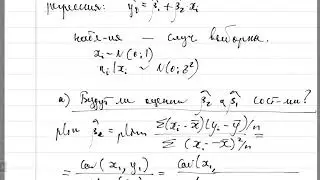 регрессия: ŷᵢ = β̂₁ + β̂₂ xᵢ
набл-ия — случ выборка.
xᵢ ~ N(0;1)
uᵢ|xᵢ ~ N(0;σ²)
а) Будут ли оценки β̂₂ и β̂₁ сост-ми?
plim β̂₂ = plim Σ(xᵢ-x̄)(yᵢ-ȳ)/n / Σ(xᵢ-x̄)²/n =
= Cov(x₁, y₁) = Cov(x₁,